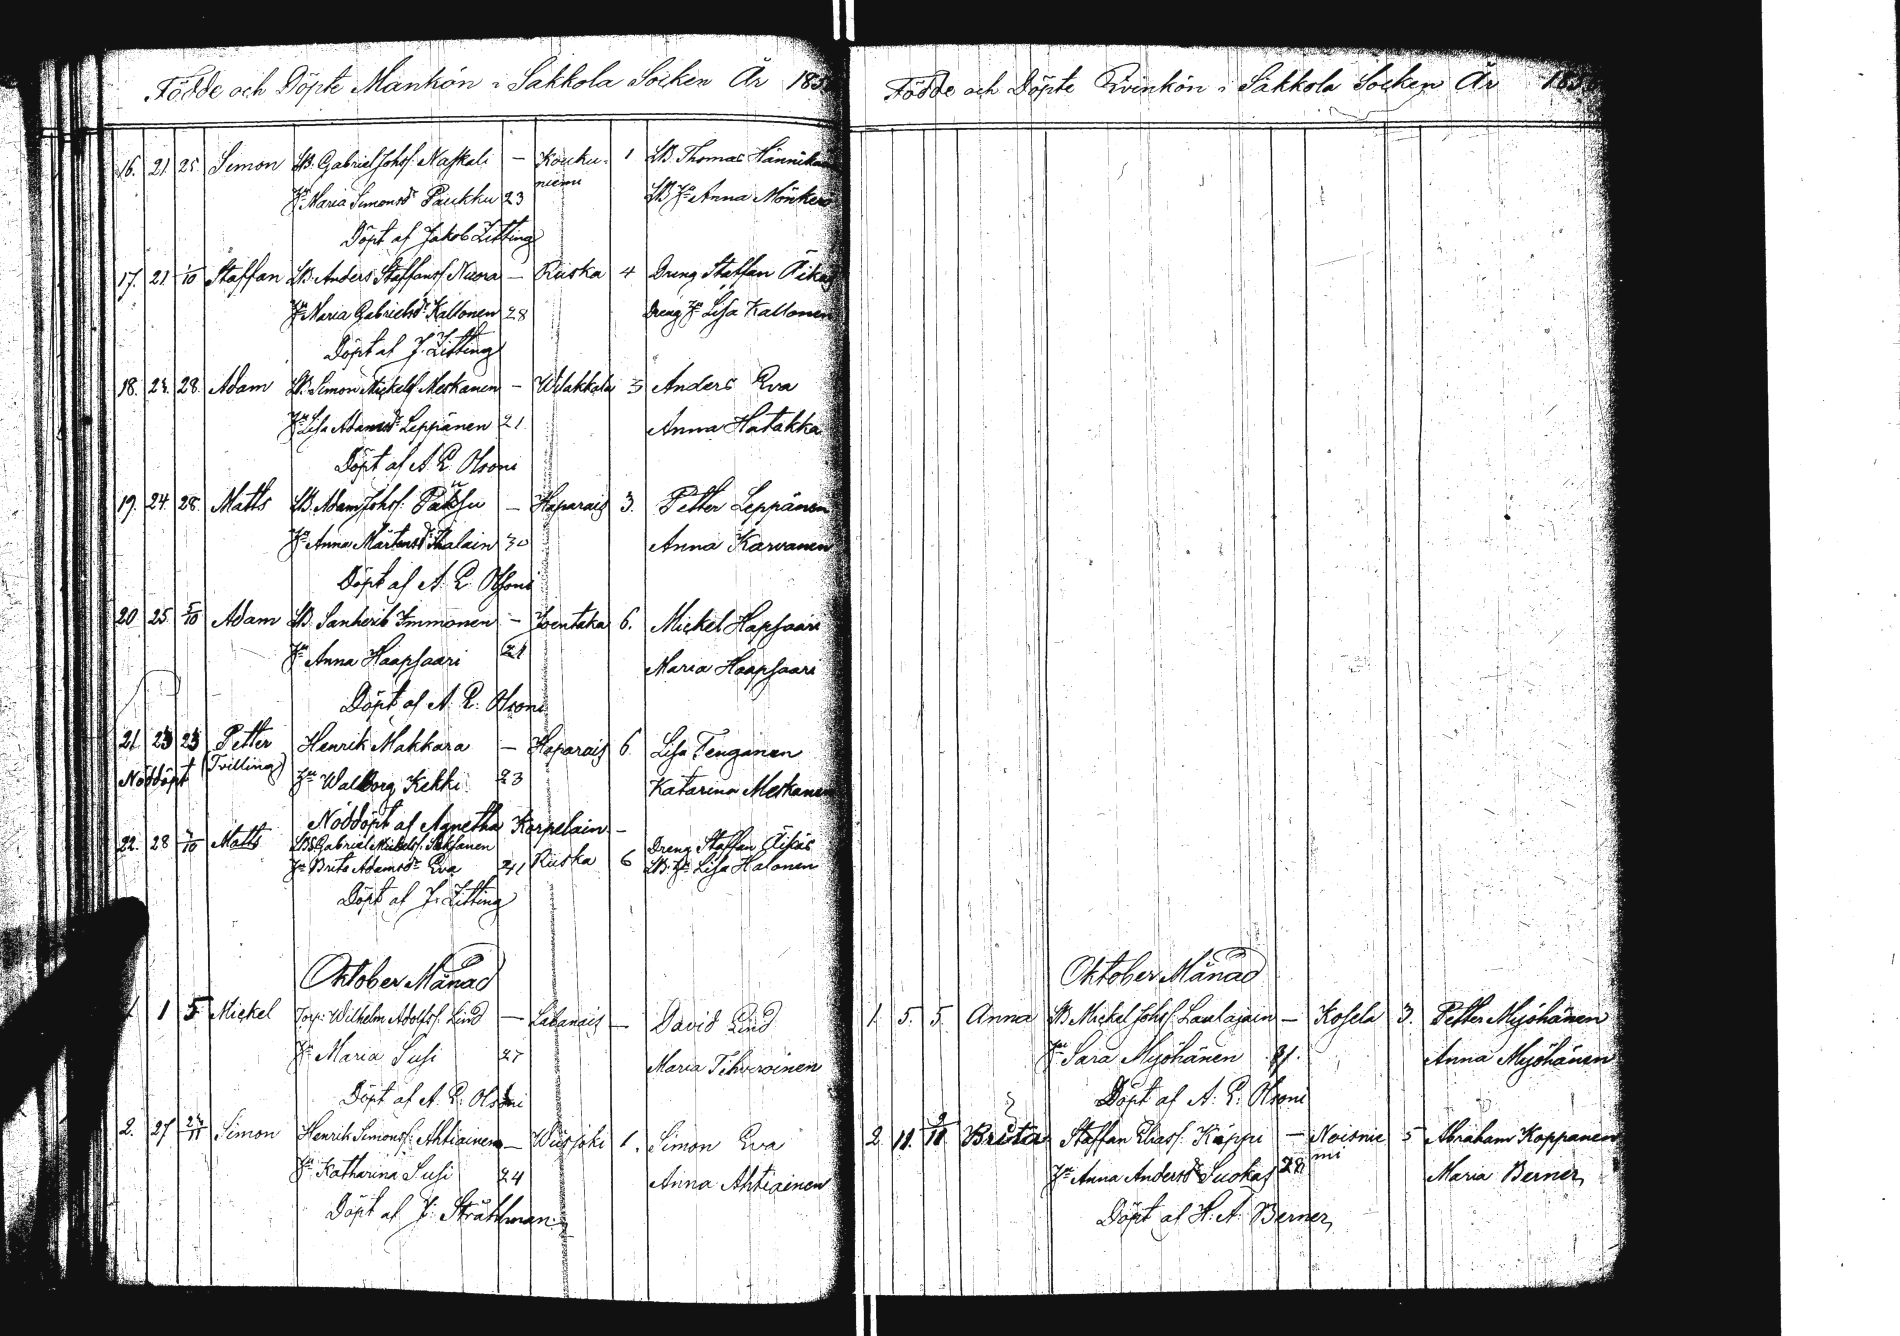 Födde och Döpte Mankön i Sakkola Socken År 185
16. 21. 25. Simon LB. Gabriel Johsf. Naskali — Kouku- 1 LB. Thomas Hännikäin
niemi
Hu Maria Simonsdr Paukku 23 LB Hu Anna Mönkerö
Döpt af Jakob Zitting
17. 21. 1/10 Staffan LB. Anders Staffansf. Nuora — Riiska 4 Dreng Staffan Äikäs
Hu Maria Gabrielsdr Kallonen 28 Dreng Hu Lisa Kallonen
Döpt af J. Zitting
18. 23. 28. Adam LB. Simon Mickelsf. Meskanen — Wilakkala 3 Anders Eva
Hu Lisa Adamsdr Leppänen 21 Anna Hatakka
Döpt af A. E. Olsoni
19. 24. 28. Matts LB. Adam Johsf. Paksu — Haparais 3. Petter Leppänen
Hu Anna Mårtensdr Ihalain 30 Anna Karvanen
Döpt af A. E. Olsoni
20 25. 5/10 Adam LB. Sanherib Immonen — Joentaka 6. Mickel Hapsaari
Hu Anna Haapsaari 21 Maria Haapsaari
Döpt af A. E. Olsoni
21 23 23 Petter Henrik Makkara — Haparais 6. Lisa Tenganen
Nöddöpt (Tvilling) Hu Walborg Kekki 23 Katarina Meskanen
Nöddöpt af Agnetha Korpelain —
22. 28 /10 Matts LB. Gabriel Mickelsf. Dreng Staffan Äikäs
Hu Brita Adamsdr Eva 241 Riiska 6 LB. Hu Lisa Halonen
Döpt af J. Zitting
Oktober Månad
1. 1 5 Mickel Torp. Wilhelm Adolfsf. Lind — Labanais — David Lind
Hu Maria Susi 27 Maria Tihveroinen
Döpt af A. E. Olsoni
2. 27 /11 Simon Henrik Simonsf. Ahtiainen — Wiisjoki 1. Simon Eva
Hu Katharina Susi 24 Anna Ahtiainen
Döpt af J. Stråhlman
Födde och Döpte Qvinkön i Sakkola Socken År 185
Oktober Månad
1. 5. 5. Anna B Mickel Johsf. Laulajain — Kosela 3. Petter Myöhänen
Hu Sara Myöhänen 31. Anna Myöhänen
Döpt af A. E. Olsoni
2 11. 9/11 Brita Staffan Eliasf. Käppi — Noisnie 5 Abraham Koppanen
mi
Hu Anna Andersdr Suokas 28 Maria Berner
Döpt af H. A. Berner